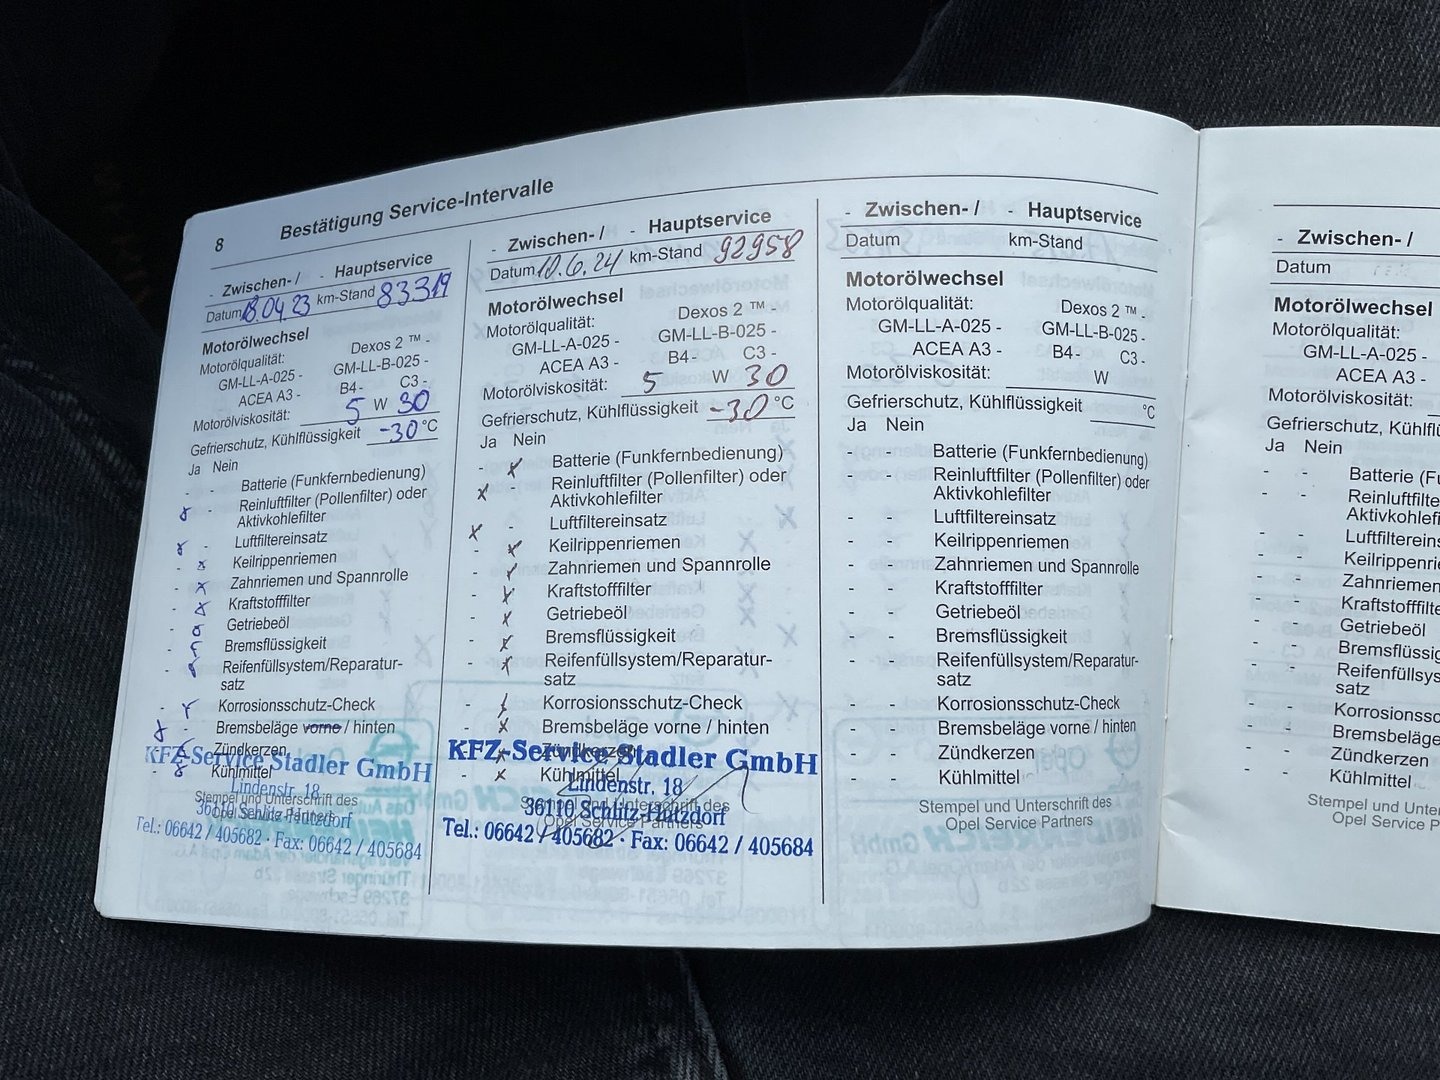 8 Bestätigung Service-Intervalle
- Zwischen- / - Hauptservice
Datum 18.04.23 km-Stand 83319
Motorölwechsel
Motorölqualität: Dexos 2 ™ -
GM-LL-A-025 - GM-LL-B-025 -
ACEA A3 - B4 - C3 -
Motorölviskosität: 5 W 30
Gefrierschutz, Kühlflüssigkeit -30 °C
Ja Nein
- - Batterie (Funkfernbedienung)
x Reinluftfilter (Pollenfilter) oder
Aktivkohlefilter
x - Luftfiltereinsatz
- x Keilrippenriemen
- x Zahnriemen und Spannrolle
- x Kraftstofffilter
- x Getriebeöl
- x Bremsflüssigkeit
- x Reifenfüllsystem/Reparatur-
satz
- x Korrosionsschutz-Check
x Bremsbeläge vorne / hinten
- x Zündkerzen
- x Kühlmittel
Stempel und Unterschrift des
KFZ-Service Stadler GmbH
Lindenstr. 18
36110 Schlitz-Hutzdorf
Tel.: 06642 / 405682 · Fax: 06642 / 405684
- Zwischen- / - Hauptservice
Datum 10.6.24 km-Stand 92958
Motorölwechsel
Motorölqualität: Dexos 2 ™ -
GM-LL-A-025 - GM-LL-B-025 -
ACEA A3 - B4 - C3 -
Motorölviskosität: 5 W 30
Gefrierschutz, Kühlflüssigkeit -30 °C
Ja Nein
- x Batterie (Funkfernbedienung)
x - Reinluftfilter (Pollenfilter) oder
Aktivkohlefilter
x - Luftfiltereinsatz
- x Keilrippenriemen
- x Zahnriemen und Spannrolle
- x Kraftstofffilter
- x Getriebeöl
- x Bremsflüssigkeit
- x Reifenfüllsystem/Reparatur-
satz
- x Korrosionsschutz-Check
- x Bremsbeläge vorne / hinten
- x Zündkerzen
- x Kühlmittel
Stempel und Unterschrift des
Opel Service Partners
KFZ-Service Stadler GmbH
Lindenstr. 18
36110 Schlitz-Hutzdorf
Tel.: 06642 / 405682 · Fax: 06642 / 405684
- Zwischen- / - Hauptservice
Datum km-Stand
Motorölwechsel
Motorölqualität: Dexos 2 ™ -
GM-LL-A-025 - GM-LL-B-025 -
ACEA A3 - B4 - C3 -
Motorölviskosität: W
Gefrierschutz, Kühlflüssigkeit °C
Ja Nein
- - Batterie (Funkfernbedienung)
- - Reinluftfilter (Pollenfilter) oder
Aktivkohlefilter
- - Luftfiltereinsatz
- - Keilrippenriemen
- - Zahnriemen und Spannrolle
- - Kraftstofffilter
- - Getriebeöl
- - Bremsflüssigkeit
- - Reifenfüllsystem/Reparatur-
satz
- - Korrosionsschutz-Check
- - Bremsbeläge vorne / hinten
- - Zündkerzen
- - Kühlmittel
Stempel und Unterschrift des
Opel Service Partners
- Zwischen- /
Datum
Motorölwechsel
Motorölqualität:
GM-LL-A-025 -
ACEA A3 -
Motorölviskosität:
Gefrierschutz, Kühlflü
Ja Nein
- - Batterie (Fu
- - Reinluftfilte
Aktivkohlef
- - Luftfiltereins
- - Keilrippenrie
- - Zahnriemen
- - Kraftstofffilte
- - Getriebeöl
- - Bremsflüssig
- - Reifenfüllsys
satz
- - Korrosionssc
- - Bremsbeläge
- - Zündkerzen
- - Kühlmittel
Stempel und Unter
Opel Service P